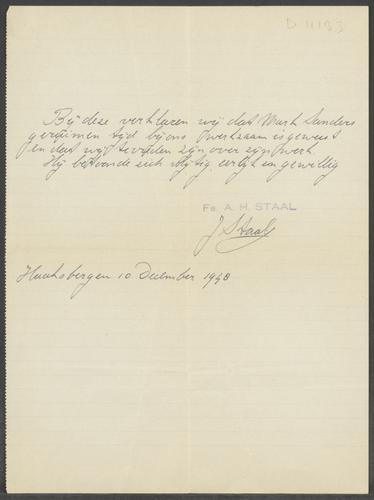 D 11133
Bij deze verklaren wij dat Mark Sanders
geruimen tijd bij ons werkzaam is geweest
en dat wij tevreden zijn over zijn werk
Hij betoonde zich vlijtig eerlijk en gewillig
Fa. A. H. STAAL
J Staal
Haaksbergen 10 December 1948